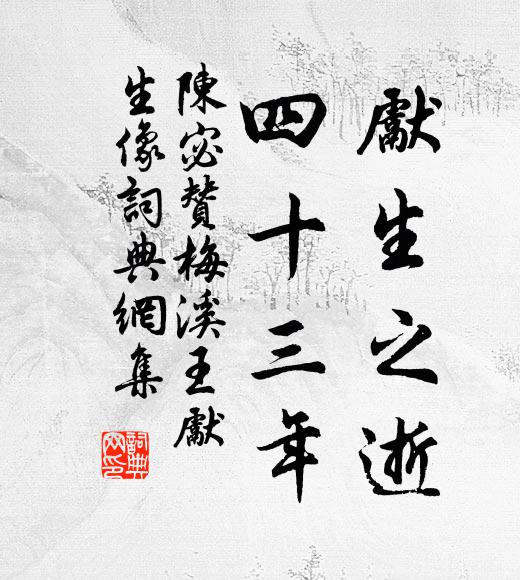 獻生之逝
四十三年
陳宓贊梅溪王獻
生像詞典網集
詞典网印